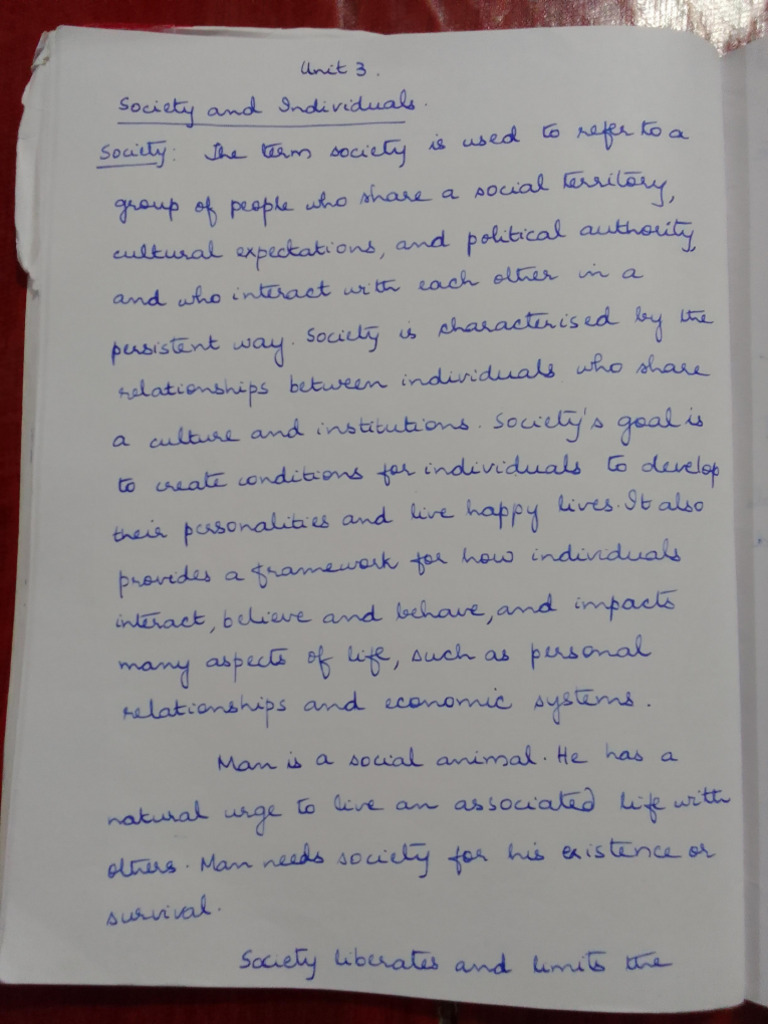 Unit 3.
Society and Individuals.
Society: The term society is used to refer to a
group of people who share a social territory,
cultural expectations, and political authority,
and who interact with each other in a
persistent way. Society is characterised by the
relationships between individuals who share
a culture and institutions. Society's goal is
to create conditions for individuals to develop
their personalities and live happy lives. It also
provides a framework for how individuals
interact, believe and behave, and impacts
many aspects of life, such as personal
relationships and economic systems.
Man is a social animal. He has a
natural urge to live an associated life with
others. Man needs society for his existence or
survival.
Society liberates and limits the